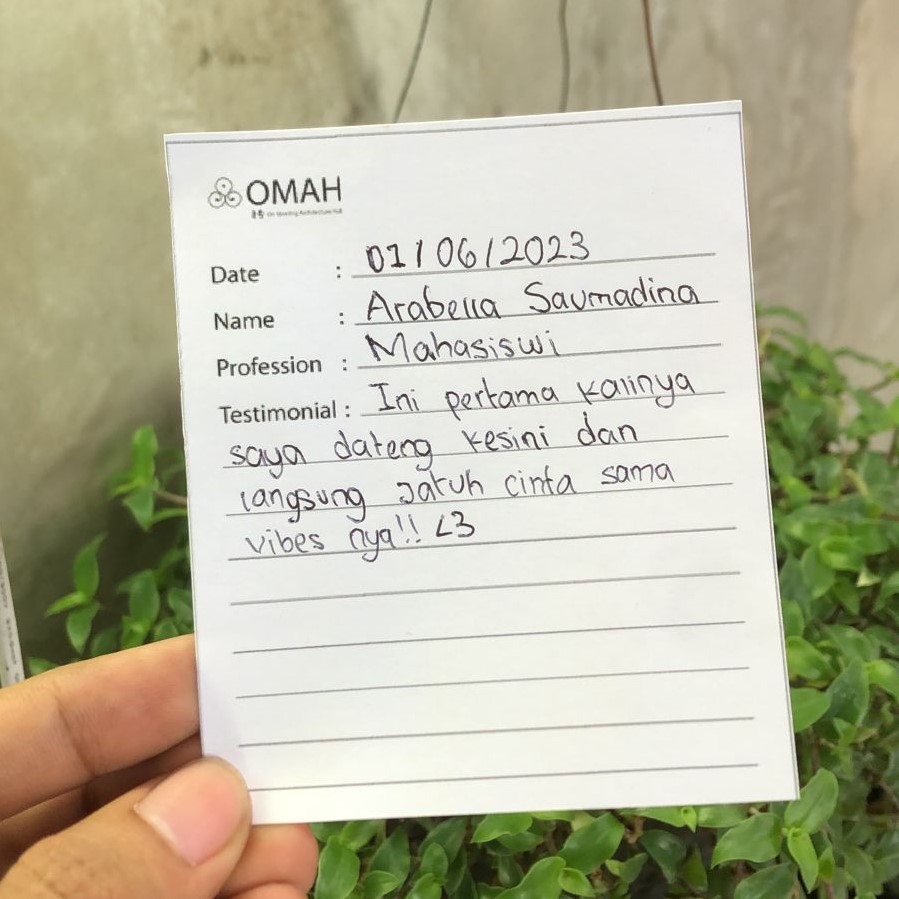 OMAH
Date : 01/06/2023
Name : Arabella Saumadina
Profession : Mahasiswi
Testimonial : Ini pertama kalinya
saya dateng kesini dan
langsung jatuh cinta sama
vibes nya!! <3